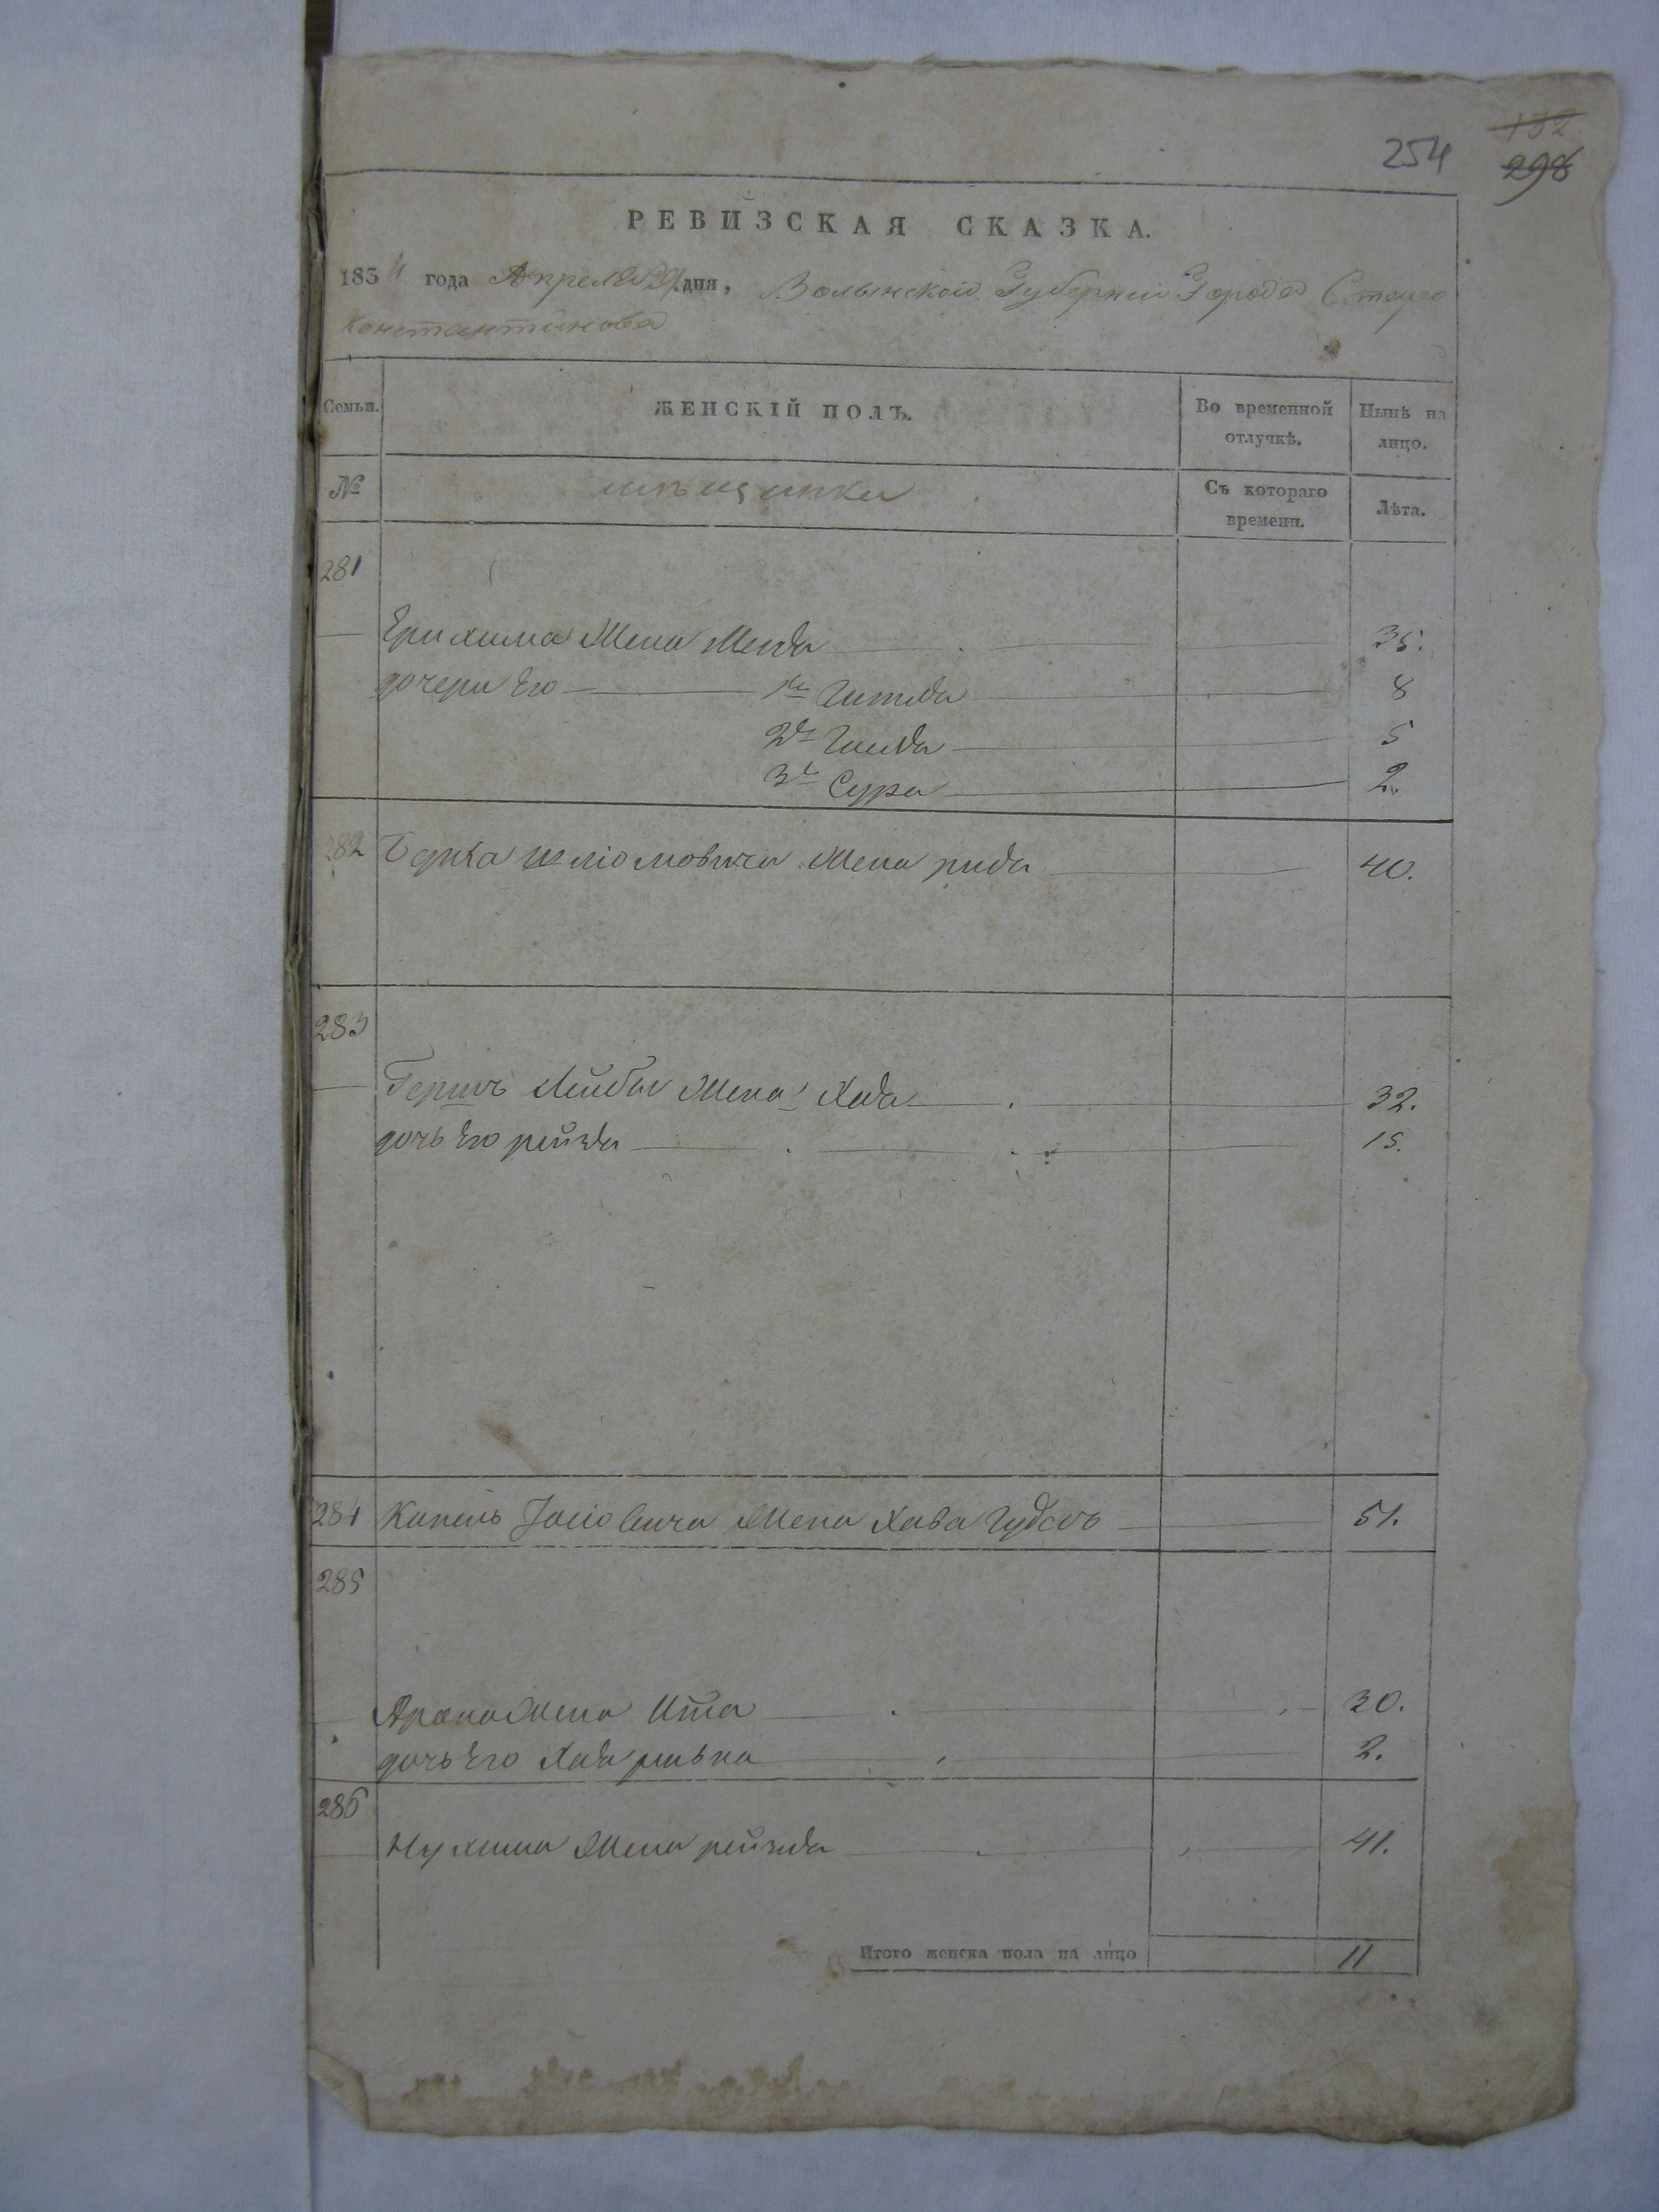 254
132
298
РЕВИЗСКАЯ СКАЗКА.
1834 года Апреля дня, Волынской Губернии Города Старо
Константинова
Семьи.
ЖЕНСКІЙ ПОЛЪ.
Во временной отлучкѣ.
Нынѣ на лицо.
№
мѣщанки
Съ котораго времени.
Лѣта.
281
Ерихима Жена 35.
дочери Его 1я Гитля 8
2я 5
3я Сура 2.
282 Берка Шліомовича Жена рида 40.
283
Гершъ Лейбы Жена Хая 32.
дочь Его рейзя 15.
284 Копель Жена Хава 51.
285
Арона Жена Ита 30.
дочь Его Хая ривка 2.
286
Нухима Жена рейзля 41.
Итого женска пола на лицо 11